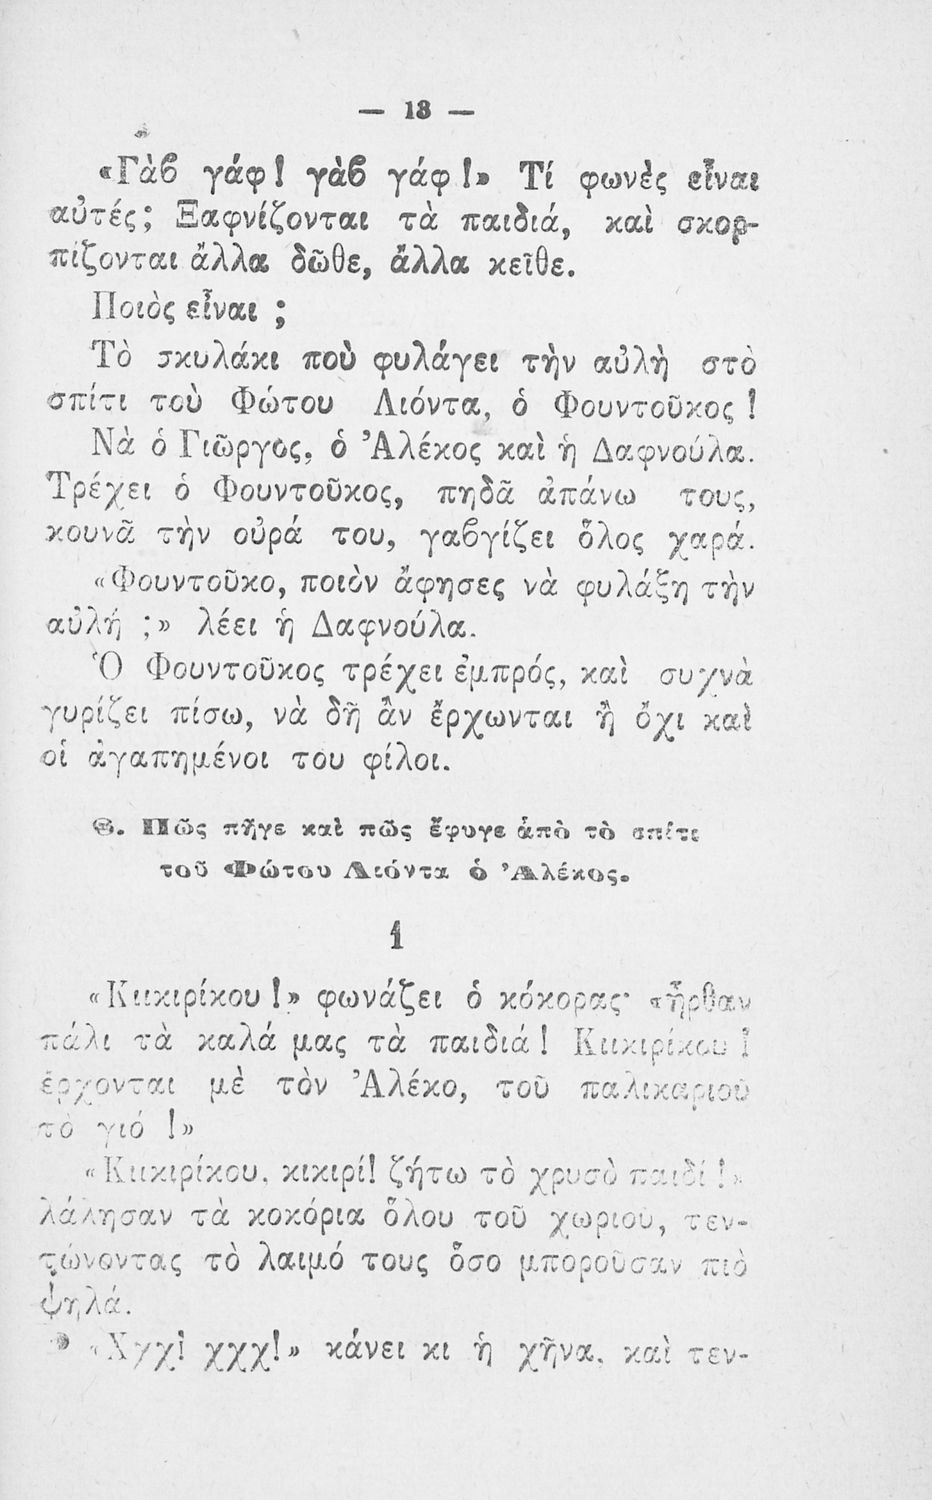 — 13 —
«Γὰβ γάφ! γὰβ γάφ!» Τί φωνὲς εἶναι
αὐτές; Ξαφνίζονται τὰ παιδιά, καὶ σκορ-
πίζονται ἄλλα δῶθε, ἄλλα κεῖθε.
Ποιὸς εἶναι ;
Τὸ σκυλάκι ποὺ φυλάγει τὴν αὐλὴ στὸ
σπίτι τοῦ Φώτου Λιόντα, ὁ Φουντοῦκος !
Νὰ ὁ Γιῶργος, ὁ Ἀλέκος καὶ ἡ Δαφνούλα.
Τρέχει ὁ Φουντοῦκος, πηδᾶ ἀπάνω τους,
κουνᾶ τὴν οὐρά του, γαβγίζει ὅλος χαρά.
«Φουντοῦκο, ποιὸν ἄφησες νὰ φυλάξη τὴν
αὐλή ;» λέει ἡ Δαφνούλα.
Ὁ Φουντοῦκος τρέχει ἐμπρός, καὶ συχνὰ
γυρίζει πίσω, νὰ δῆ ἂν ἔρχωνται ἢ ὄχι καὶ
οἱ ἀγαπημένοι του φίλοι.
8. Πῶς πῆγε καὶ πῶς ἔφυγε ἀπὸ τὸ σπίτι
τοῦ Φώτου Λιόντα ὁ Ἀλέκος.
1
«Κικιρίκου !» φωνάζει ὁ κόκορας· «ἦρθαν
πάλι τὰ καλά μας τὰ παιδιά ! Κικιρίκου !
ἔρχονται μὲ τὸν Ἀλέκο, τοῦ παλικαριοῦ
τὸ γιό !»
«Κικιρίκου, κικιρί! ζήτω τὸ χρυσὸ παιδί !»
λάλησαν τὰ κοκόρια ὅλου τοῦ χωριοῦ, τεν-
τώνοντας τὸ λαιμό τους ὅσο μποροῦσαν πιὸ
ψηλά.
«Χχχ! χχχ!» κάνει κι ἡ χῆνα, καὶ τεν-